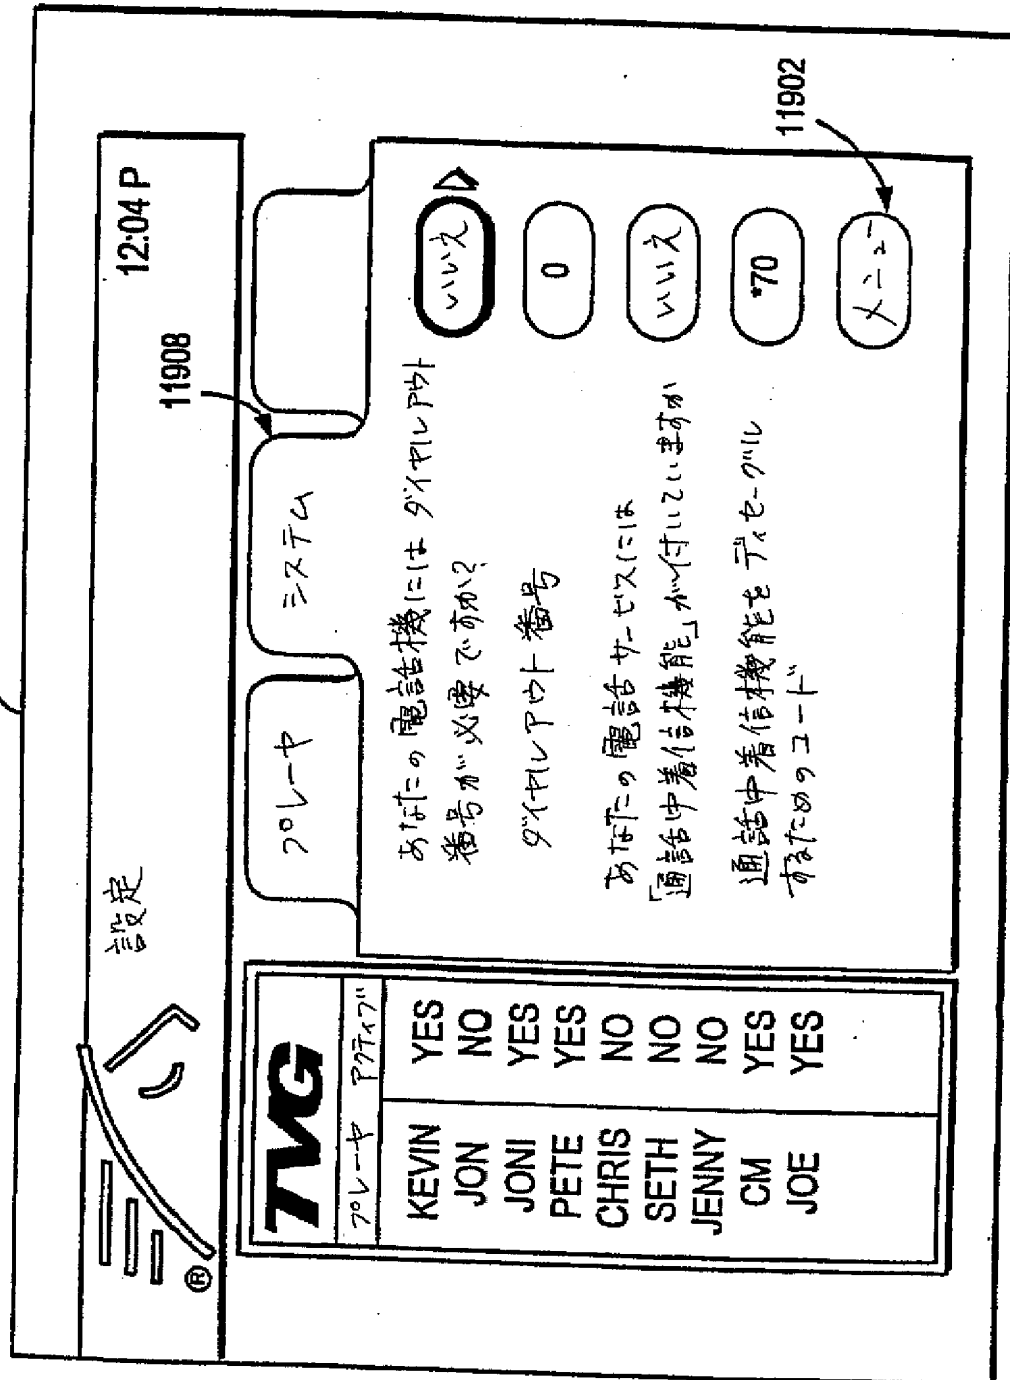 設定
12:04 P
®
11908
TVG
プレーヤ アクティブ
KEVIN YES
JON NO
JONI YES
PETE YES
CHRIS NO
SETH NO
JENNY NO
CM YES
JOE YES
プレーヤ
システム
あなたの電話機には ダイヤルアウト
番号が必要ですか?
いいえ
ダイヤルアウト番号
0
あなたの電話サービスには
「通話中着信機能」が付いていますか
いいえ
通話中着信機能を ディセーブル
するためのコード
*70
メニュー
11902